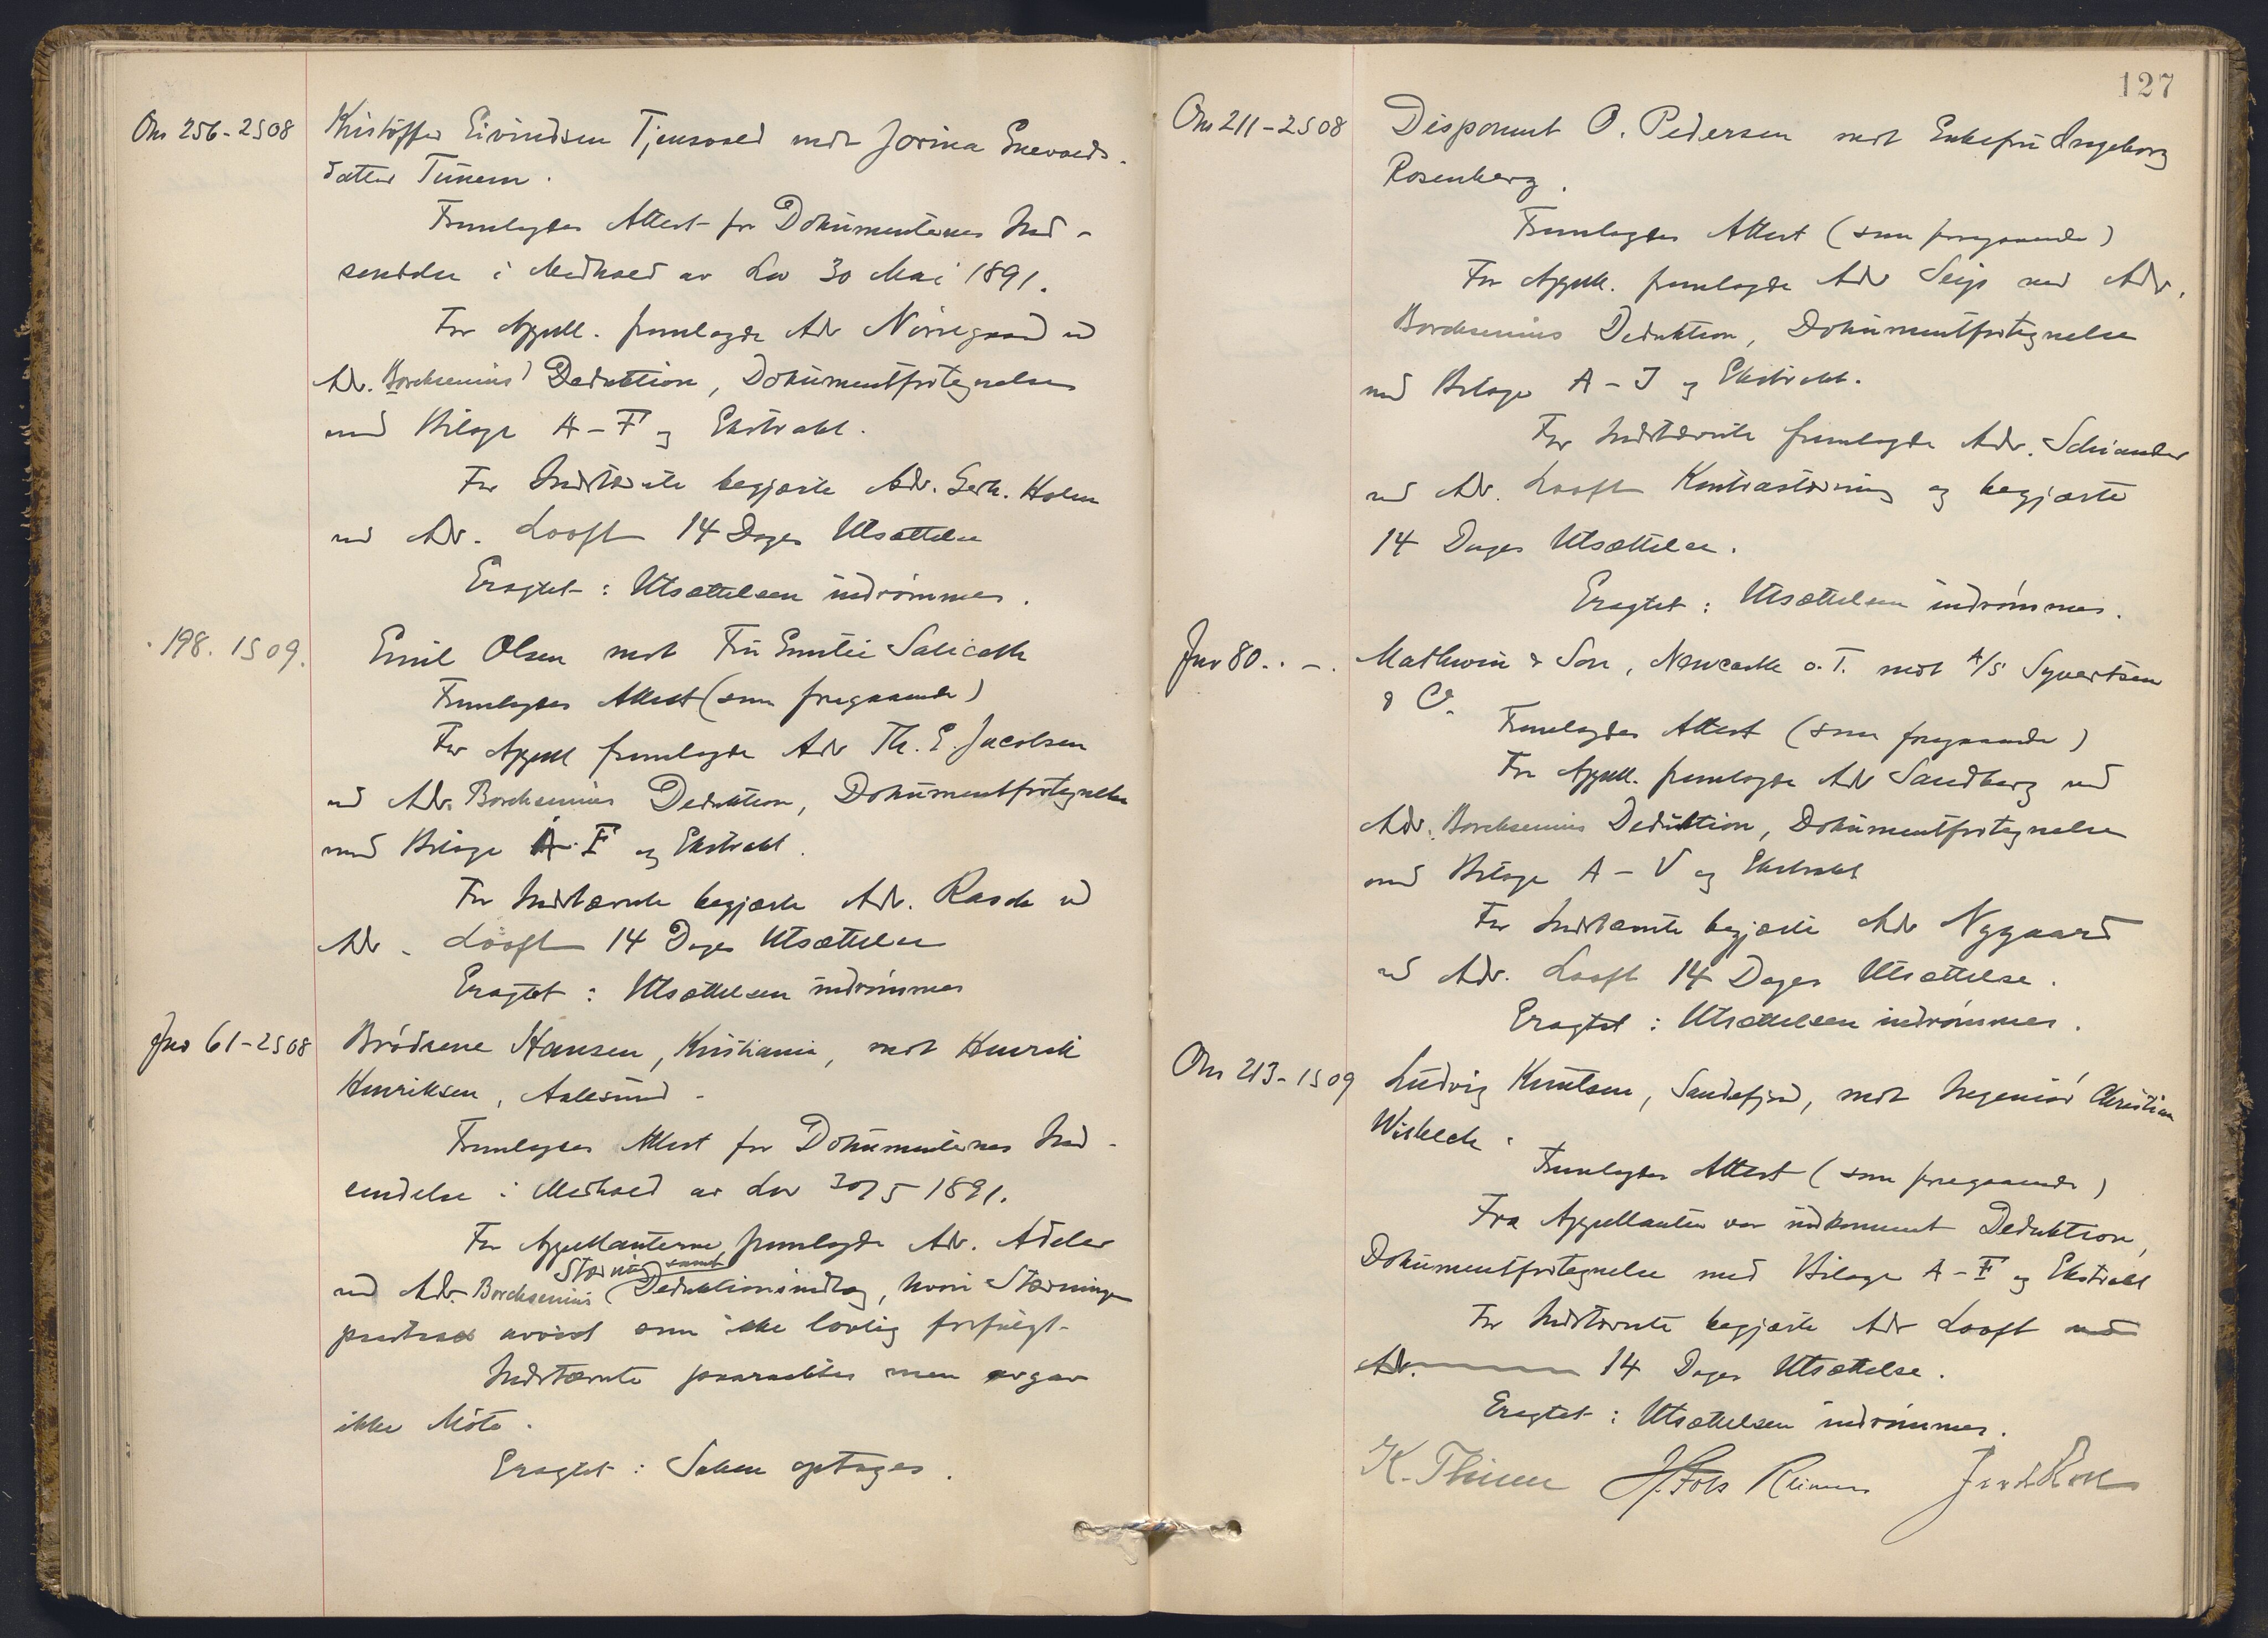 Ons 256-2S08
Kristoffer Eivindsen Tjensvold mot Jorina Enevolds-
datter Tunem.
Fremlagdes Attest for Dokumenternes Ind-
sendelse i Medhold av Lov 30 Mai 1891.
For Appell. fremlagde Adv Nørregaard v
Adv. Borchsenius' Deduktion, Dokumentfortegnelse
med Bilage A-F og Ekstrakt.
For Indstævnte begjærte Adv. Gerh. Holm
ved Adv. Looft 14 Dages Utsættelse
Eragtet: Utsættelsen indrømmes.
. 198. 1S09.
Emil Olsen mot Fru Emilie Salicath
Fremlagdes Attest (som foregaaende)
For Appell fremlagde Adv Th. E. Jacobsen
ved Adv. Borchsenius Deduktion, Dokumentfortegnelse
med Bilage A-F og Ekstrakt.
For Indstævnte begjærte Adv. Rasch v
Adv. Looft 14 Dages Utsættelse
Eragtet: Utsættelsen indrømmes
Jno 61-2S08
Brødrene Hansen, Kristiania, mot Henrik
Henriksen, Aalesund.
Fremlagdes Attest for Dokumenternes Ind-
sendelse i Medhold av Lov 30/5 1891.
For Appellanterne fremlagde Adv. Adeler
Stævning samt
ved Adv. Borchsenius Deduktionsindlæg, hvori Stævningen
paastaaes avvist som ikke lovlig forfulgt.
Indstævnte paaraabtes men avgav
ikke Møte.
Eragtet: Saken optages.
127
Ons 211-2S08
Disponent O. Pedersen mot Enkefru Ingeborg
Rosenberg.
Fremlagdes Attest (som foregaaende)
For Appell. fremlagde Adv Seip ved Adv.
Borchsenius Deduktion, Dokumentfortegnelse
med Bilage A-J og Ekstrakt.
For Indstævnte fremlagde Adv. Schiander
ved Adv. Looft Kontrastævning og begjærte
14 Dages Utsættelse.
Eragtet: Utsættelsen indrømmes.
Jno 80. . - .
Mathwin & Son, Newcastle o. T. mot A/S Syvertsen
& Co.
Fremlagdes Attest (som foregaaende)
For Appell. fremlagde Adv Sandberg ved
Adv. Borchsenius Deduktion, Dokumentfortegnelse
med Bilage A-V og Ekstrakt
For Indstævnte begjærte Adv Nygaard
ved Adv. Looft 14 Dages Utsættelse.
Eragtet: Utsættelsen indrømmes.
Ons 213-1S09
Ludvig Knutsen, Sandefjord, mot Ingeniør Christian
Wisbech.
Fremlagdes Attest (som foregaaende)
Fra Appellanten var indkommet Deduktion,
Dokumentfortegnelse med Bilage A-F og Ekstrakt
For Indstævnte begjærte Adv Looft ved
Adv. 14 Dages Utsættelse.
Eragtet: Utsættelsen indrømmes.
K. Thinn H. Foss Reimers